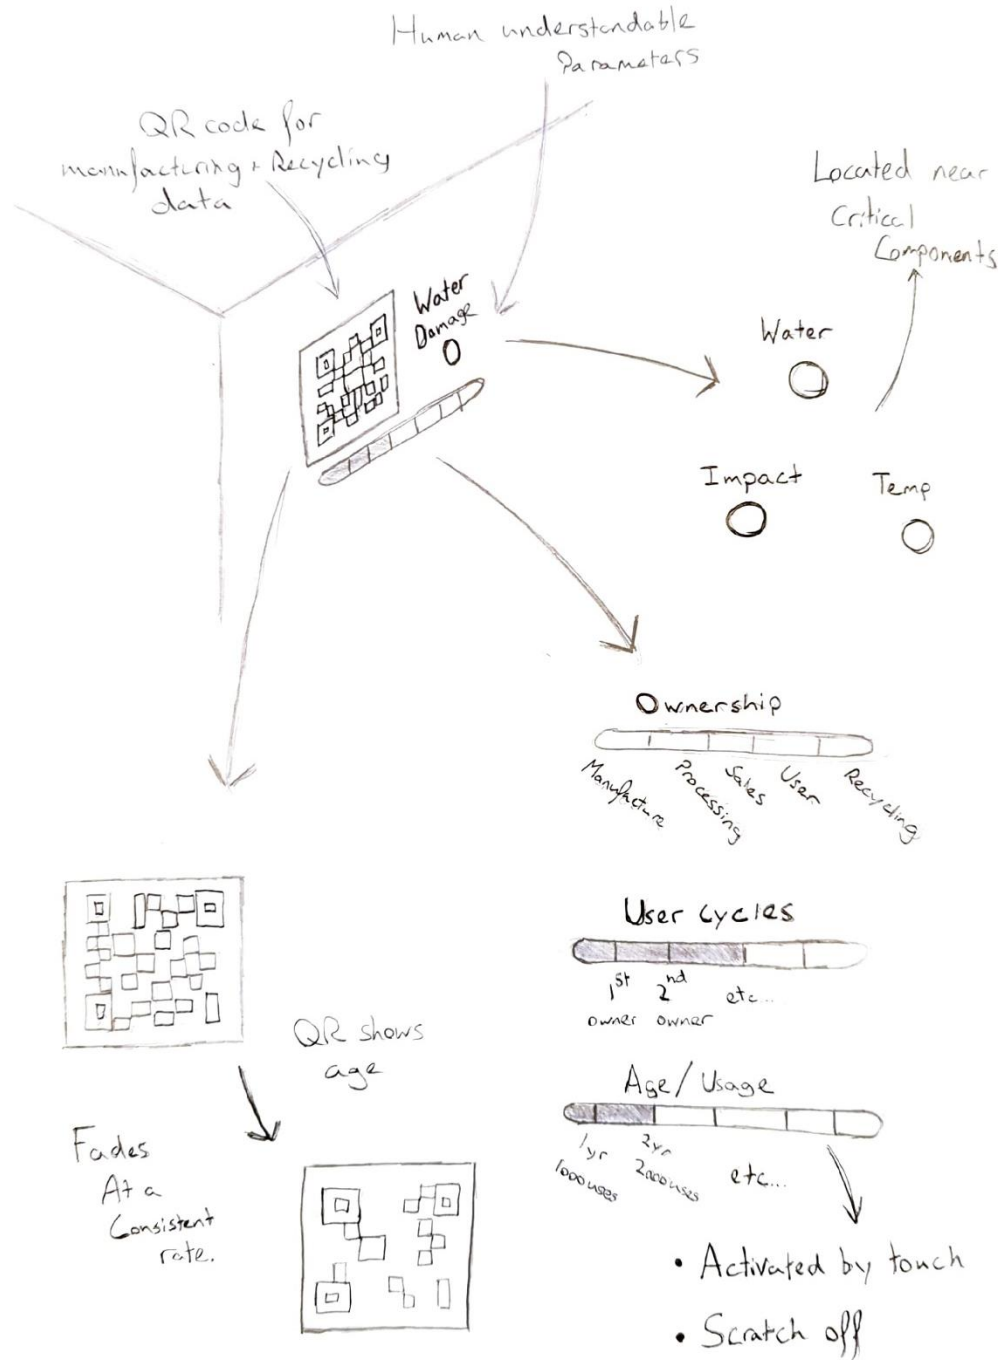 Human understandable
Parameters
QR code for
manufacturing + Recycling
data
Located near
Critical
Components
Water
Damage
Water
Impact
Temp
Ownership
Manufacture
Processing
Sales
User
Recycling
User cycles
1st
owner
2nd
owner
etc...
QR shows
age
Age/Usage
1yr
1000uses
2yr
2000uses
etc...
Fades
At a
Consistent
rate.
• Activated by touch
• Scratch off